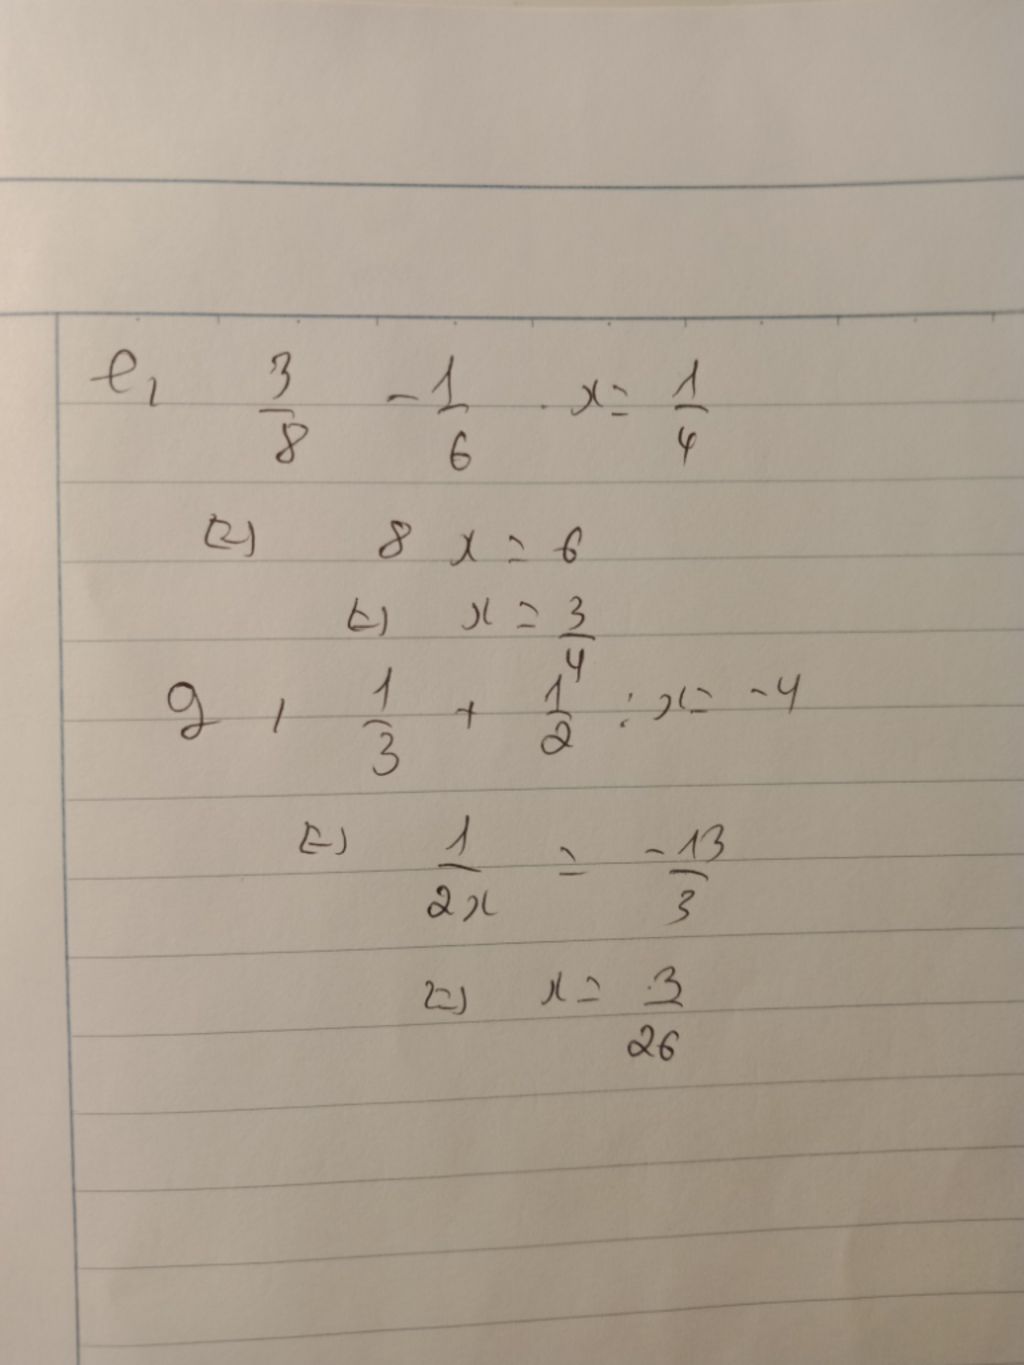 e, 3/8 - 1/6 . x = 1/4
<=> 8 x = 6
<=> x = 3/4
g, 1/3 + 1/2 : x = -4
<=> 1/2x = -13/3
<=> x = 3/26